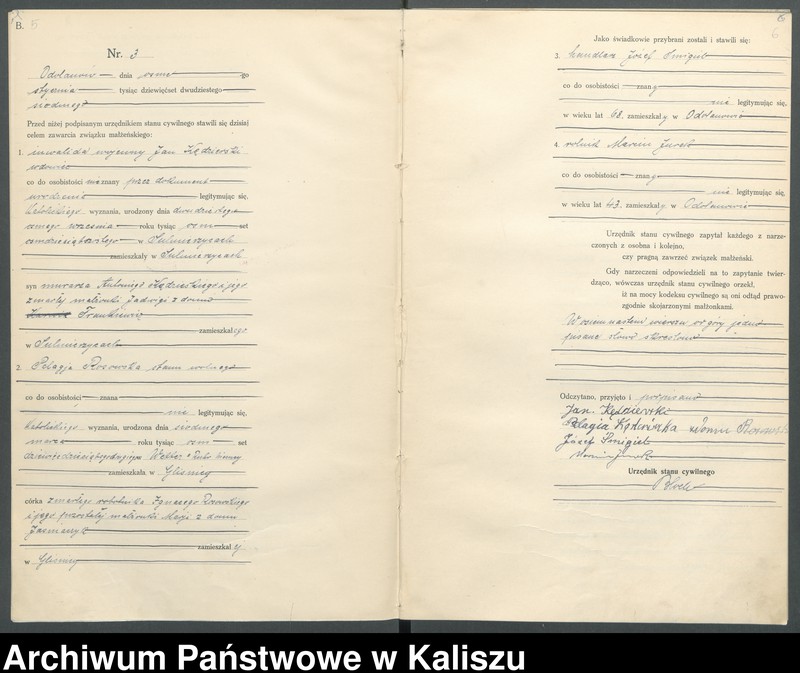 B. 5
Nr. 3
Odolanów dnia ósme go
stycznia tysiąc dziewięćset dwudziestego
siódmego
Przed niżej podpisanym urzędnikiem stanu cywilnego stawili się dzisiaj
celem zawarcia związku małżeńskiego:
1. inwalida wojenny Jan Kędzierski
wdowiec
co do osobistości nieznany przez dokument
urodzenia legitymując się,
katolickiego wyznania, urodzony dnia dwudziestego
września roku tysiąc osm set
w Sulmierzycach
zamieszkały w Sulmierzycach
syn murarza Antoniego Kędzierskiego i jego
zmarłej małżonki Jadwigi z domu
Frankiewicz
zamieszkałego
w Sulmierzycach
2. Pelagja Rosowska stanu wolnego
co do osobistości znana
nie legitymując się,
katolickiego wyznania, urodzona dnia siódmego
marca roku tysiąc osm set
zamieszkała w Glisnicy
córka zmarłego robotnika Ignacego Rosowskiego
i jego pozostałej małżonki Marji z domu
zamieszkałej
w Glisnicy
6
Jako świadkowie przybrani zostali i stawili się:
3. handlarz Józef Śmigiel
co do osobistości znany
nie legitymując się,
w wieku lat 68. zamieszkały w Odolanowie
4. rolnik Marcin Jurek
co do osobistości znany
nie legitymując się,
w wieku lat 43. zamieszkały w Odolanowie
Urzędnik stanu cywilnego zapytał każdego z narze-
czonych z osobna i kolejno,
czy pragną zawrzeć związek małżeński.
Gdy narzeczeni odpowiedzieli na to zapytanie twier-
dząco, wówczas urzędnik stanu cywilnego orzekł,
iż na mocy kodeksu cywilnego są oni odtąd prawo-
zgodnie skojarzonymi małżonkami.
W osiemnastem wierszu od góry jedno
pisane słowo skreślono
Odczytano, przyjęto i podpisano
Jan. Kędzierski
Pelagia Kędzierska z domu Rosowska
Józef Śmigiel
Marcin Jurek
Urzędnik stanu cywilnego
Archiwum Państwowe w Kaliszu